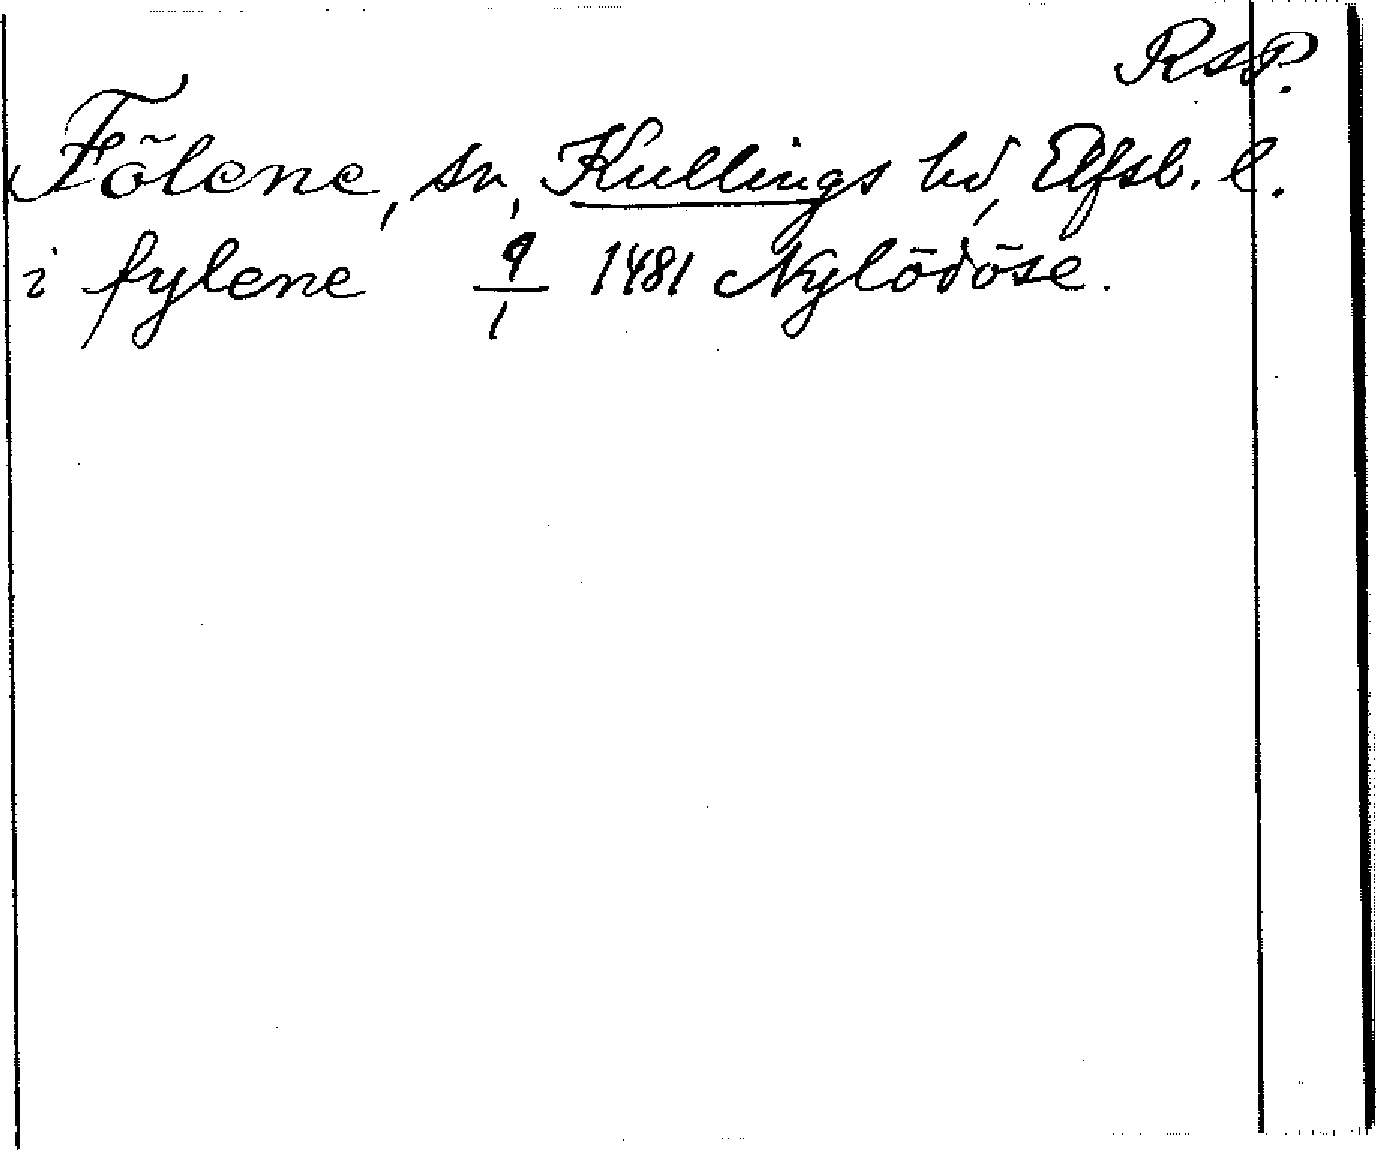 RAP.
Fölene, sn, Kullings hd, Elfsb. l.
i fylene 9/1 1481 Nylödöse.